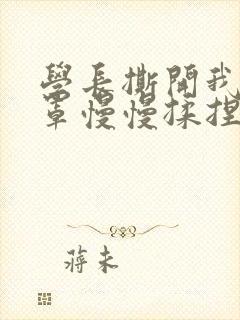 學長撕開我
罩慢慢揉捏
蔣未